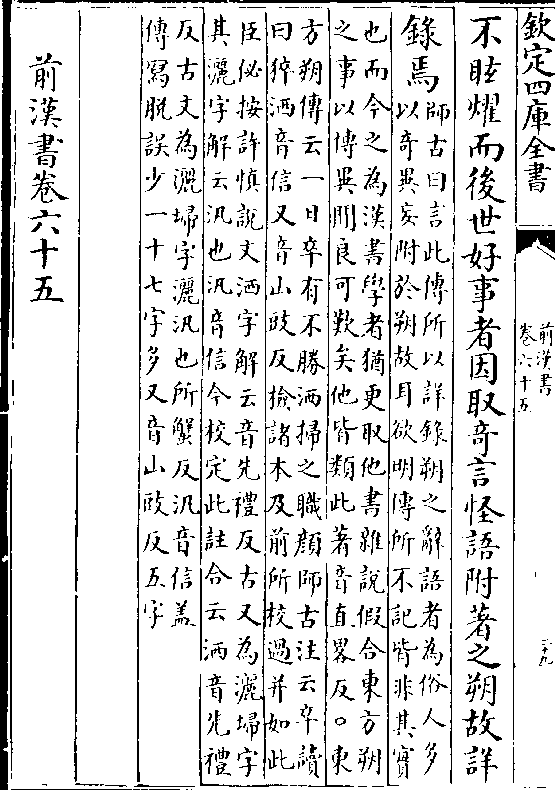 欽定四庫全書
前漢書
卷六十五
二十九
不眩燿而後世好事者因取奇言怪語附著之朔故詳
錄焉
師古曰言此傳所以詳錄朔之辭語者為俗人多
以奇異妄附於朔故耳欲明傳所不記皆非其實
也而今之為漢書學者猶更取他書雜說假合東方朔
之事以傳異聞良可歎矣他皆類此著音直畧反○東
方朔傳云一日卒有不勝洒掃之職顔師古注云卒讀
曰猝洒音信又音山豉反檢諸本及前所校過并如此
臣佖按許慎說文洒字解云音先禮反古又為灑埽字
其灑字解云汛也汛音信今校定此註合云洒音先禮
反古文為灑埽字灑汛也所蟹反汛音信盖
傳寫脫誤少一十七字多又音山豉反五字
前漢書卷六十五